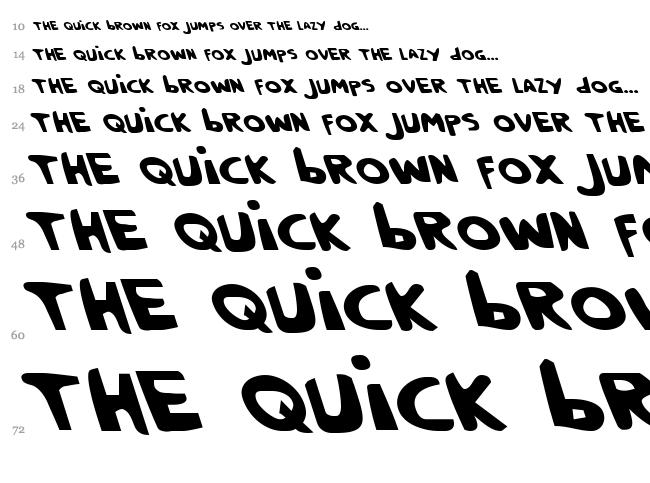 10 THE QUiCK bROWN FOX JUMPS OVER THE LAZY dOG...
14 THE QUiCK bROWN FOX JUMPS OVER THE LAZY dOG...
18 THE QUiCK bROWN FOX JUMPS OVER THE LAZY dOG...
24 THE QUiCK bROWN FOX JUMPS OVER THE
36 THE QUiCK bROWN FOX JUM
48 THE QUiCK bROWN F
60 THE QUiCK bROW
72 THE QUiCK bR